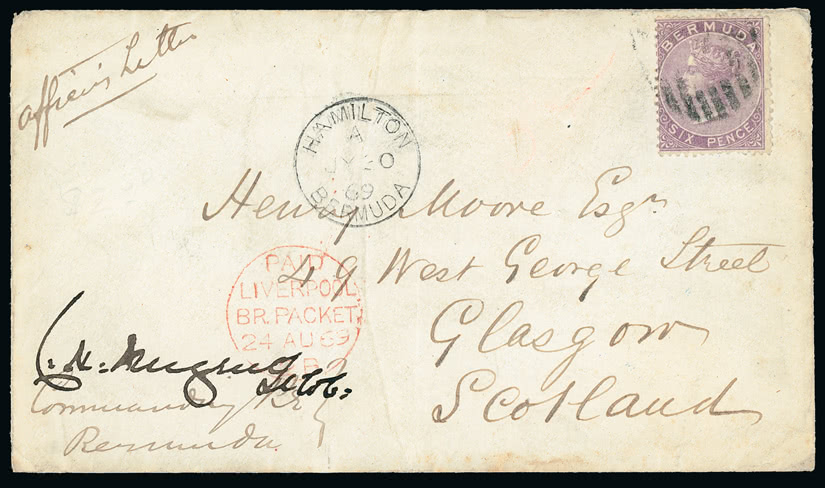 Officer's Letter
BERMUDA
SIX PENCE
HAMILTON
A
JY 20
69
BERMUDA
Henry Moore Esqr
49 West George Street
Glasgow
Scotland
PAID
LIVERPOOL
BR. PACKET
24 AU 69
Commanding
Bermuda